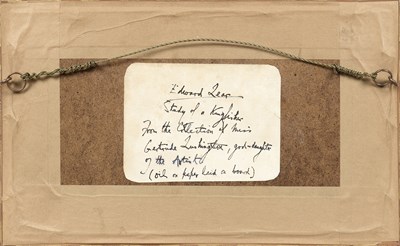 Edward Lear
Study of a Kingfisher
From the Collection of Miss
Gertrude Lushington, god-daughter
of the Artist
(oil on paper laid on board)